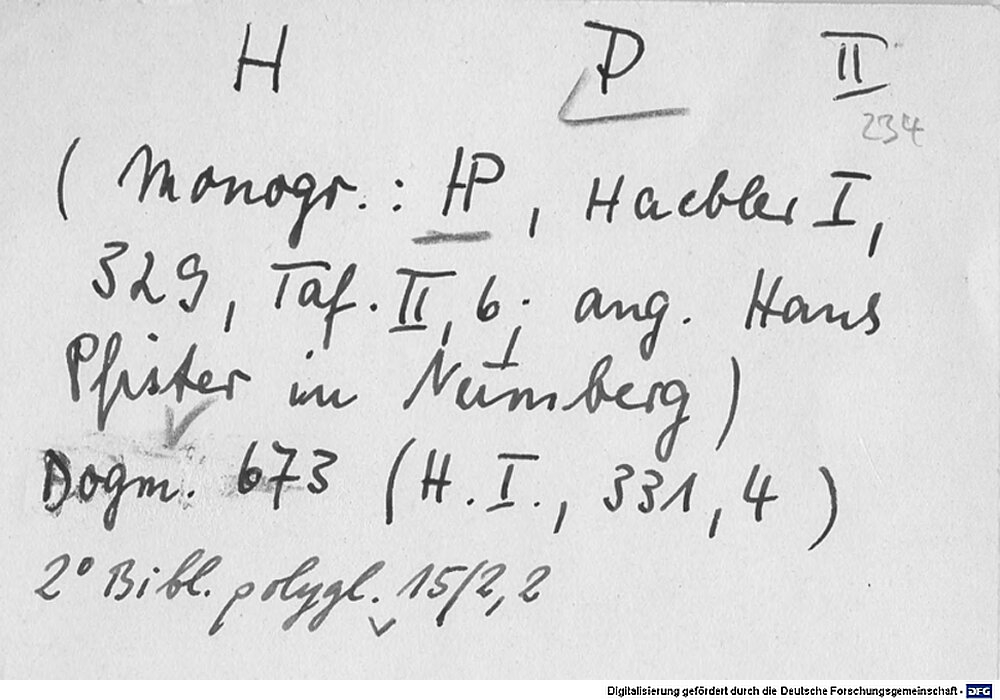 H P II
234
( Monogr.: HP, Haebler I,
329, Taf. II, 6; ang. Hans
Pfister in Nürnberg)
Dogm. 673 (H. I., 331, 4)
2° Bibl. polygl. 15/2, 2
Digitalisierung gefördert durch die Deutsche Forschungsgemeinschaft - DFG